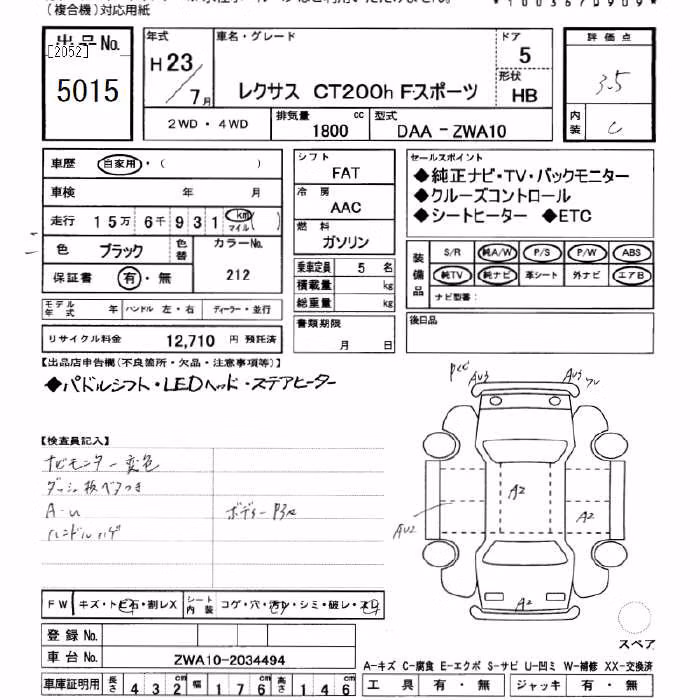 (複合機)対応用紙
出品No. 年式 車名・グレード ドア 評価点
[2052]
5015
H23 / 7月
レクサス CT200h Fスポーツ
5
形状
HB
3.5
内装 C
2WD・4WD 排気量 1800 cc 型式 DAA-ZWA10
車歴 自家用・( )
シフト FAT
セールスポイント
◆純正ナビ・TV・バックモニター
◆クルーズコントロール
◆シートヒーター ◆ETC
車検 年 月
冷房 AAC
走行 15万6千931 km マイル ( )
燃料 ガソリン
色 ブラック 色替 カラーNo. 212
保証書 有・無
装備品 S/R 純A/W P/S P/W ABS
純TV 純ナビ 革シート 外ナビ エアB
ナビ型番:
乗車定員 5 名
積載量 kg
総重量 kg
モデル年式 年 ハンドル 左・右 ディーラー・並行
書類期限 月 日
後日品
リサイクル料金 12,710 円 預託済
【出品店申告欄(不良箇所・欠品・注意事項等)】
◆パドルシフト・LEDヘッド・ステアヒーター
AU3 AU3
【検査員記入】
ナビモニター変色
ダッシュ板ベタつき
A-U
ハンドルハゲ
ボディーP3
A2
A2
AU2
A2
FW キズ・トビ石・割レX シート内装 コゲ・穴・汚レ・シミ・破レ・スレ
登録No.
車台No. ZWA10-2034494
スペア
A-キズ C-腐食 E-エクボ S-サビ U-凹ミ W-補修 XX-交換済
車庫証明用 長さ 432cm 幅 176cm 高さ 146cm
工具 有・無 ジャッキ 有・無